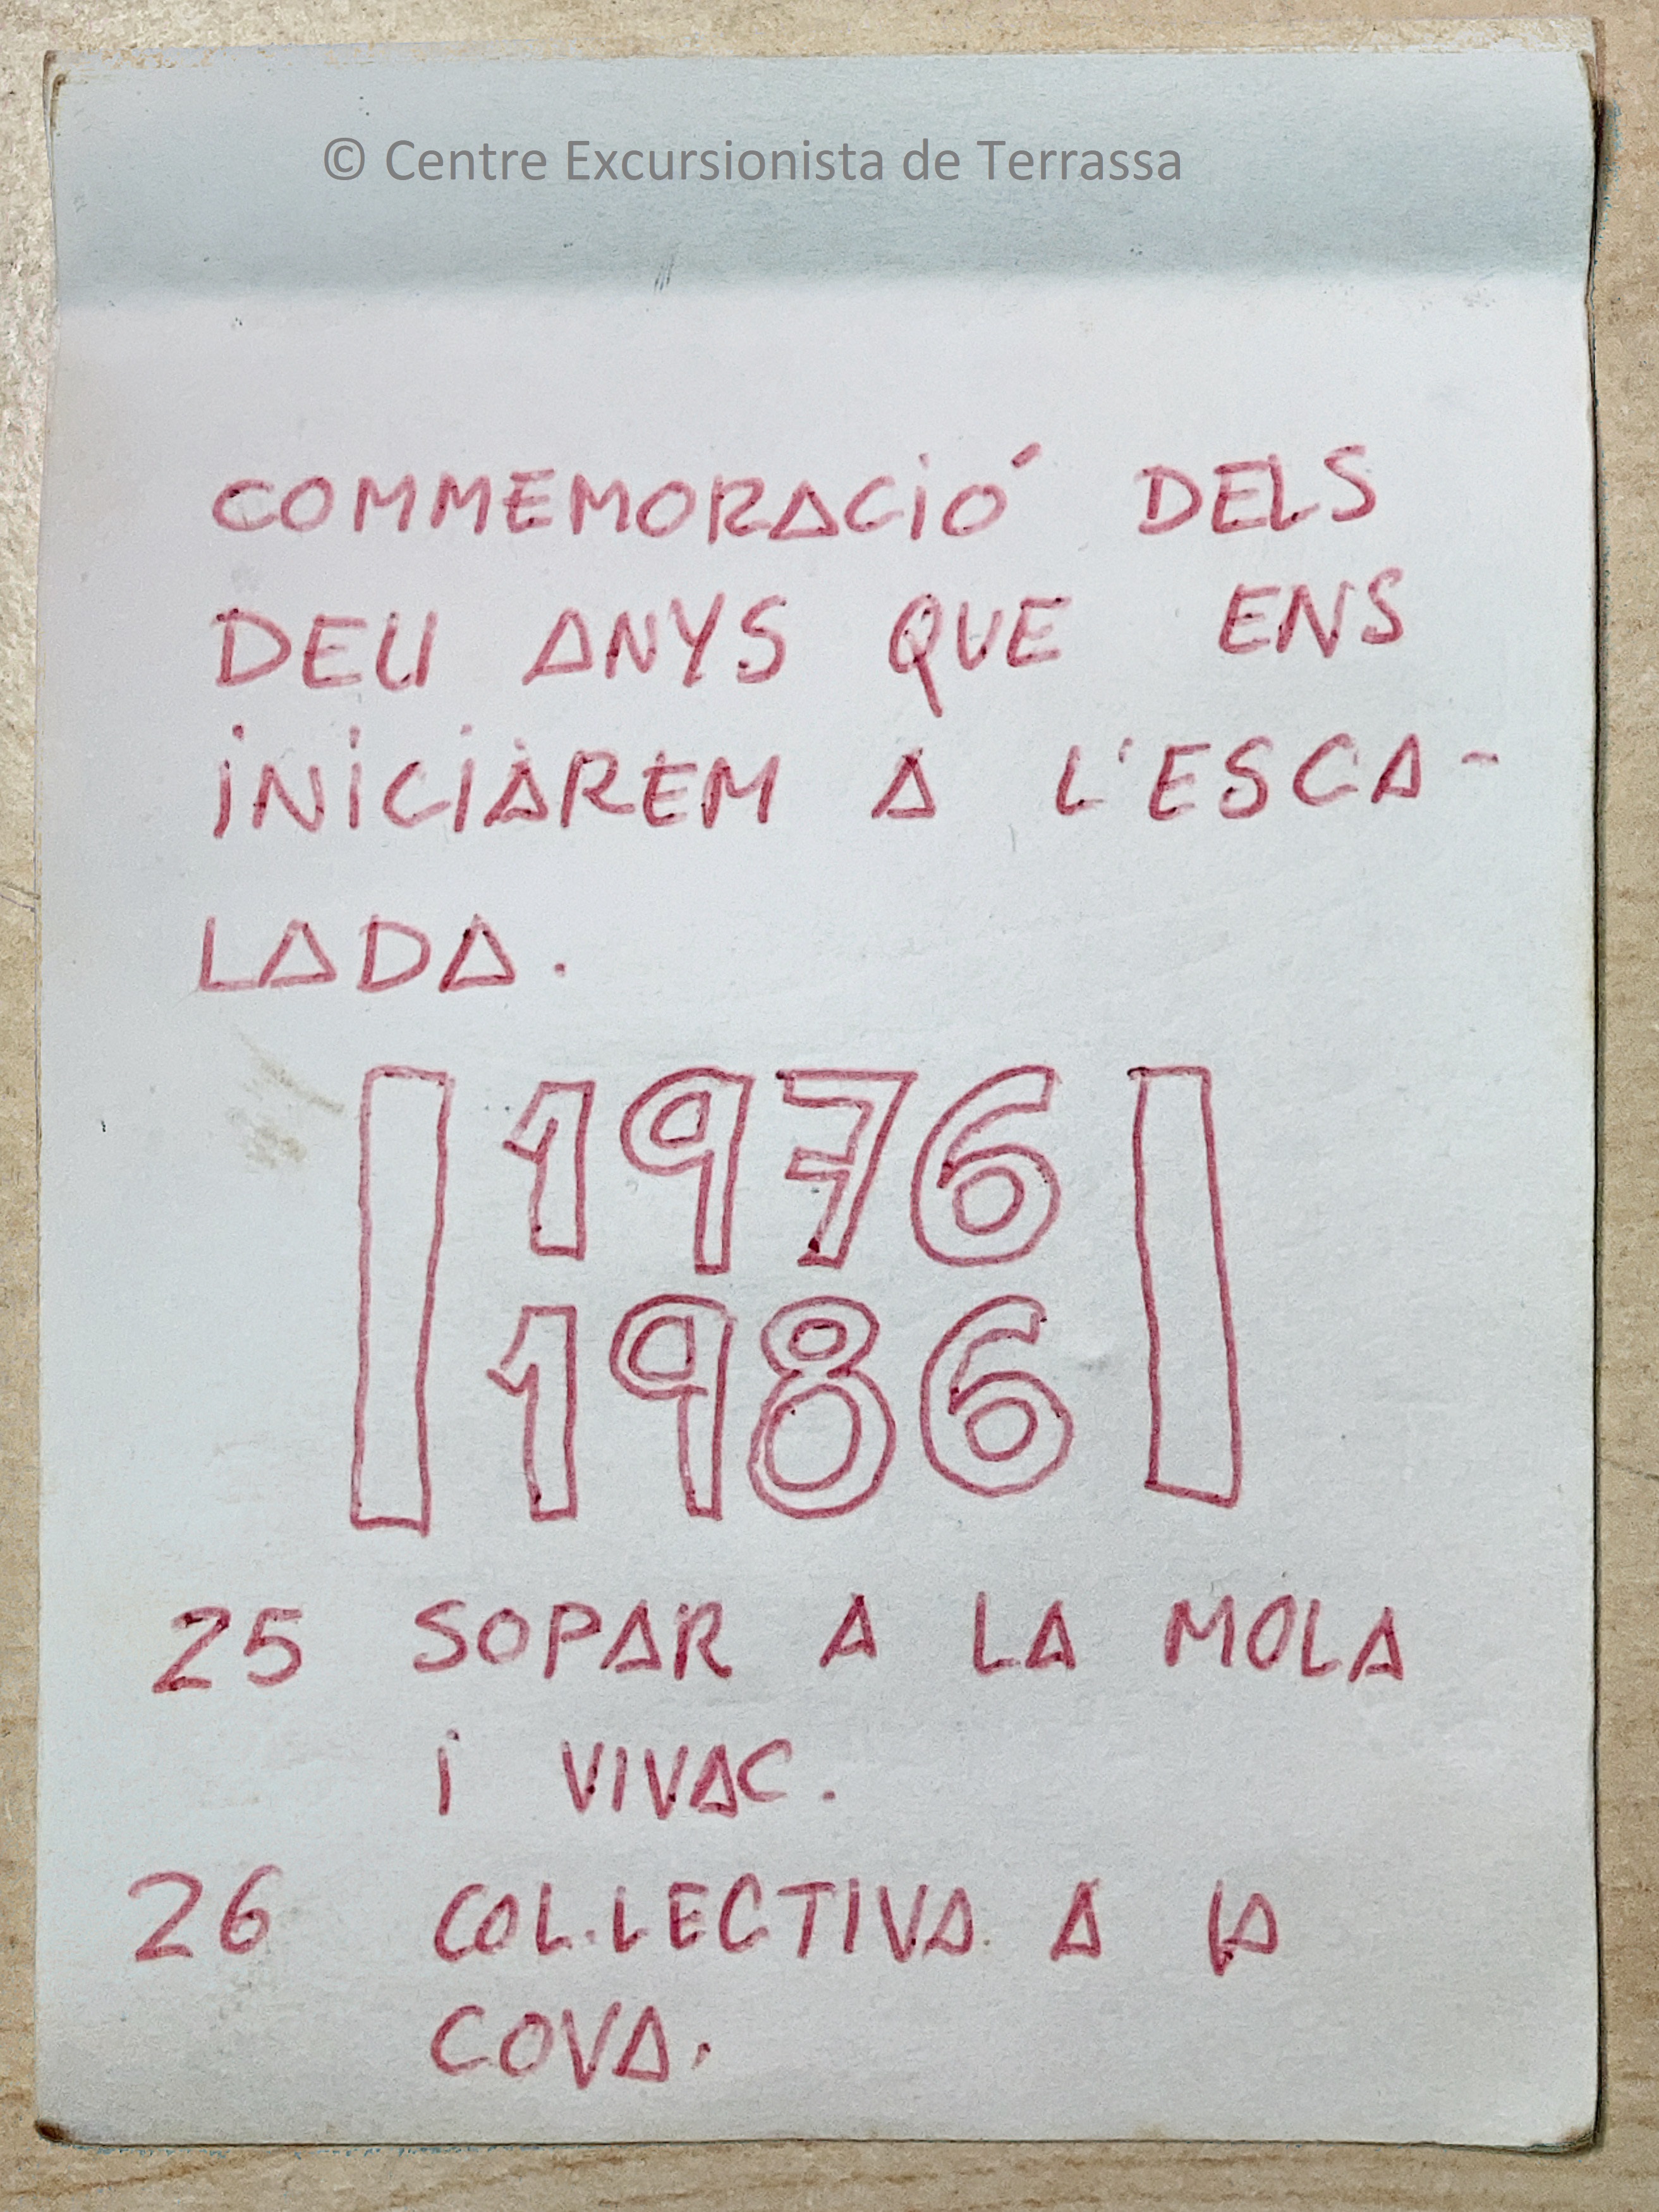 © Centre Excursionista de Terrassa
COMMEMORACIÓ DELS
DEU ANYS QUE ENS
INICIÀREM A L'ESCA-
LADA.
1976
1986
25 SOPAR A LA MOLA
I VIVAC.
26 COL·LECTIVA A LA
COVA.